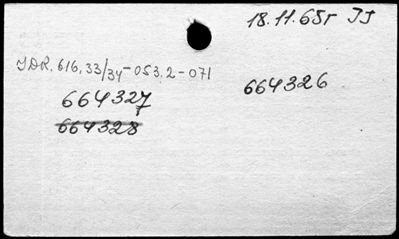 18.11.65г JJ
JDR. 616.33/34-053.2-071
664327 664326
664328